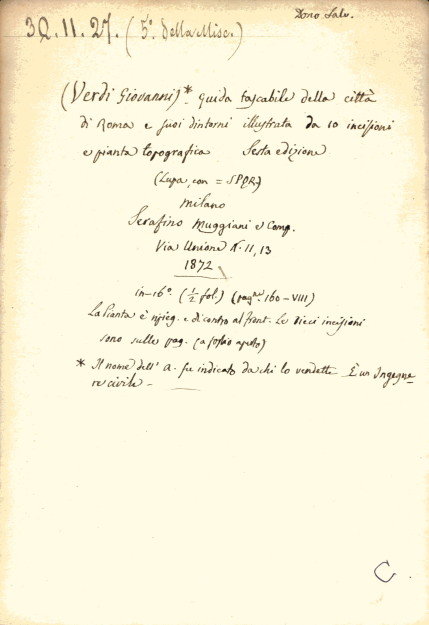 Dono Salv.
3Q.11.27. (5°. della Misc.)
(Verdi Giovanni)* Guida tascabile della città
di Roma e suoi dintorni illustrata da 10 incisioni
e pianta topografica Sesta edizione
(Lupa, con = SPQR)
Milano
Serafino Muggiani e Comp.
Via Unione N. 11, 13
1872
in-16°. (½ fol.) (pagne. 160-VIII)
La Pianta è ripieg. e di contro al front. Le dieci incisioni
sono sulle pag. (a foglio aperto)
* Il nome dell' A. fu indicato da chi lo vendette È un Ingegne
re civile -
C.